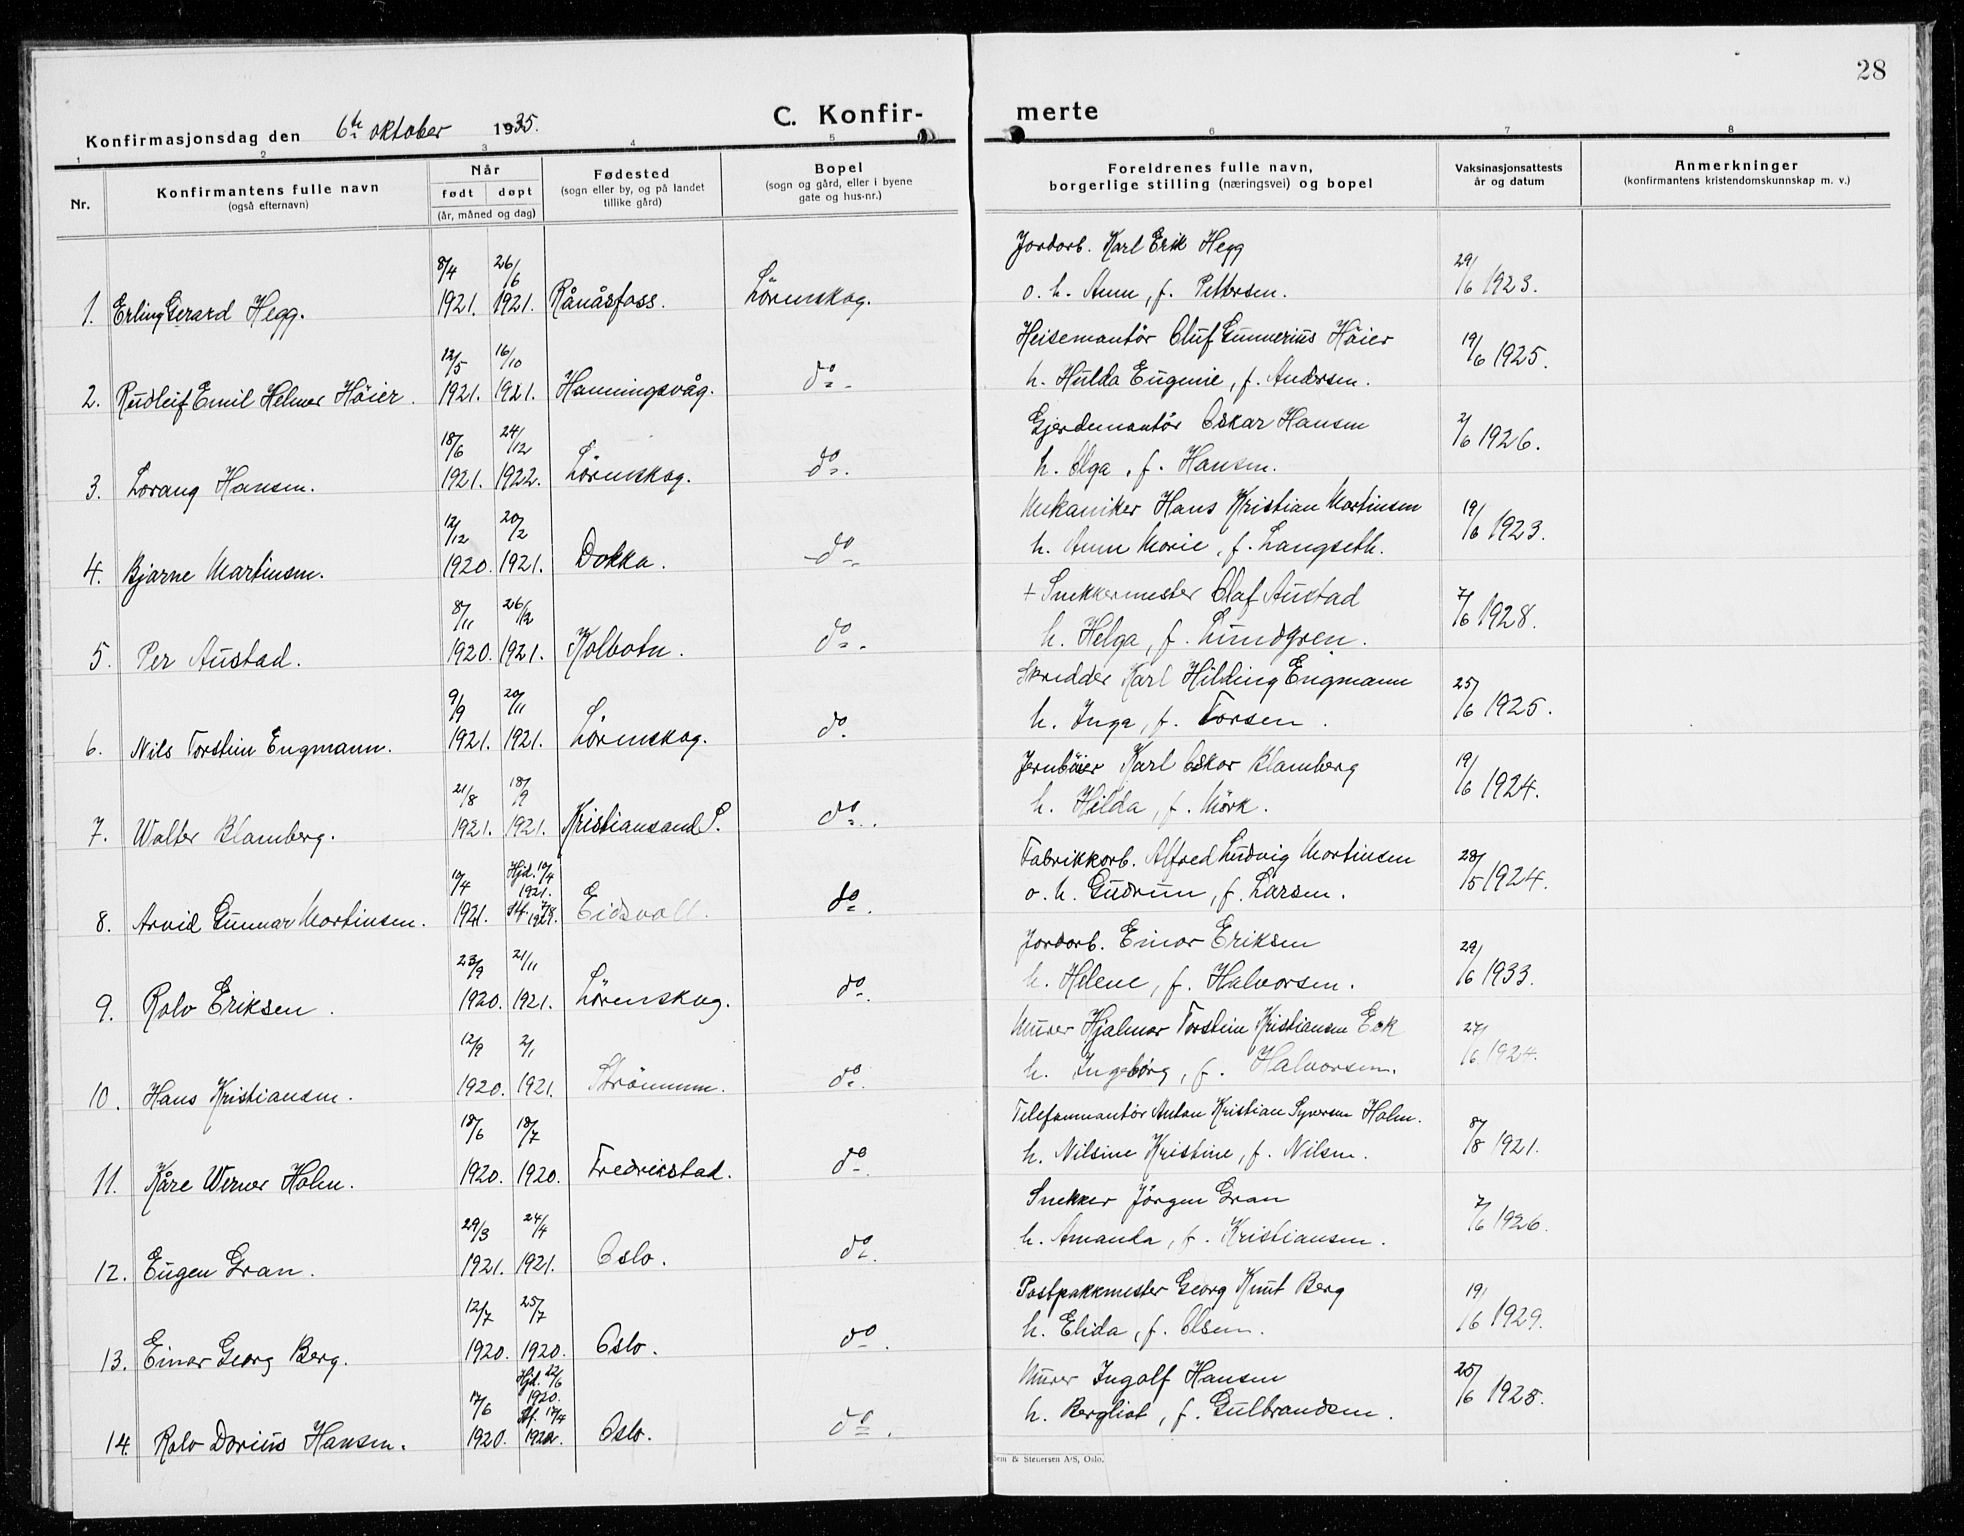 28
Konfirmasjonsdag den 6te oktober 1935.
C. Konfirmerte
1 2 3 4 5 6 7 8
Nr.
Konfirmantens fulle navn
(også efternavn)
Når
født døpt
(år, måned og dag)
Fødested
(sogn eller by, og på landet
tillike gård)
Bopel
(sogn og gård, eller i byene
gate og hus-nr.)
Foreldrenes fulle navn,
borgerlige stilling (næringsvei) og bopel
Vaksinasjonsattests
år og datum
Anmerkninger
(konfirmantens kristendomskunnskap m. v.)
8/4 26/6 Jordarb. Karl Erik Hegg 29/
1. Erling Gerard Hegg. 1921. 1921. Rånåsfoss. Lørenskog. o. h. Anna, f. Pettersen. /6 1923.
12/5 16/10 Heisemontör Oluf Gunnerius Höier 19/6 1925.
2. Rudleif Emil Helmer Höier. 1921. 1921. Honningsvåg. do. h. Hulda Eugenie, f. Andersen.
18/6 24/12 Gjerdemontör Oskar Hansen 2/6 1926.
3. Lorang Hansen. 1921. 1922. Lörenskog. do. h. Olga, f. Hansen.
12/12 20/2 Mekaniker Hans Kristian Martinsen 19/6 1923.
4. Bjarne Martinsen. 1920. 1921. Dokka. do h. Anna Marie, f. Langseth.
8/11 26/12 + Snekkermester Olaf Austad 7/6 1928.
5. Per Austad. 1920. 1921. Kolbotn. do. h. Helga, f. Lundgren.
9/9 20/11 Skredder Karl Hilding Engmann 25/6 1925.
6. Nils Torstein Engmann. 1921. 1921. Lörenskog. do. h. Inga, f. Torsen.
21/8 18/9 Jernbøier Karl Oskar Blamberg 19/6 1924.
7. Walter Blamberg. 1921. 1921. Kristiansand S. do. h. Hilda, f. Mörk.
10/4 Hjd. 10/4 1921. Fabrikkarb. Alfred Ludvig Martinsen 28/5 1924.
8. Arvid Gunnar Martinsen. 1921. Stf. 7/8 1921. Eidsvoll. do. o. h. Gudrun, f. Larsen.
23/9 21/11 Jordarb. Einar Eriksen 29/6 1933.
9. Rolv Eriksen. 1920. 1921. Lörenskog. do. h. Helene, f. Halvorsen.
12/9 2/1 Murer Hjalmar Torstein Kristiansen Eek 27/6 1924.
10. Hans Kristiansen. 1920. 1921. Strömmen. do. h. Ingeborg, f. Halvorsen.
18/6 18/7 Telefonmontör Anton Kristian Syversen Holm. 8/8 1921.
11. Kåre Werner Holm. 1920. 1920. Fredrikstad. do. h. Nilsine Kristine, f. Nilsen.
29/3 24/4 Snekker Jörgen Gran 7/6 1926.
12. Eugen Gran. 1921. 1921. Oslo. do. h. Amanda, f. Kristiansen.
12/7 25/7 Postpakkmester Georg Knut Berg 19/6 1929.
13. Einar Georg Berg. 1920. 1920. Oslo. do. h. Elida, f. Olsen.
17/6 Hjd. 22/6 1920. Murer Ingolf Hansen 25/6 1925.
14. Rolv Dorius Hansen. 1920. Stf. 17/4 1922. Oslo. do. h. Bergliot, f. Gulbrandsen.
& Stenersen A/S, Oslo.